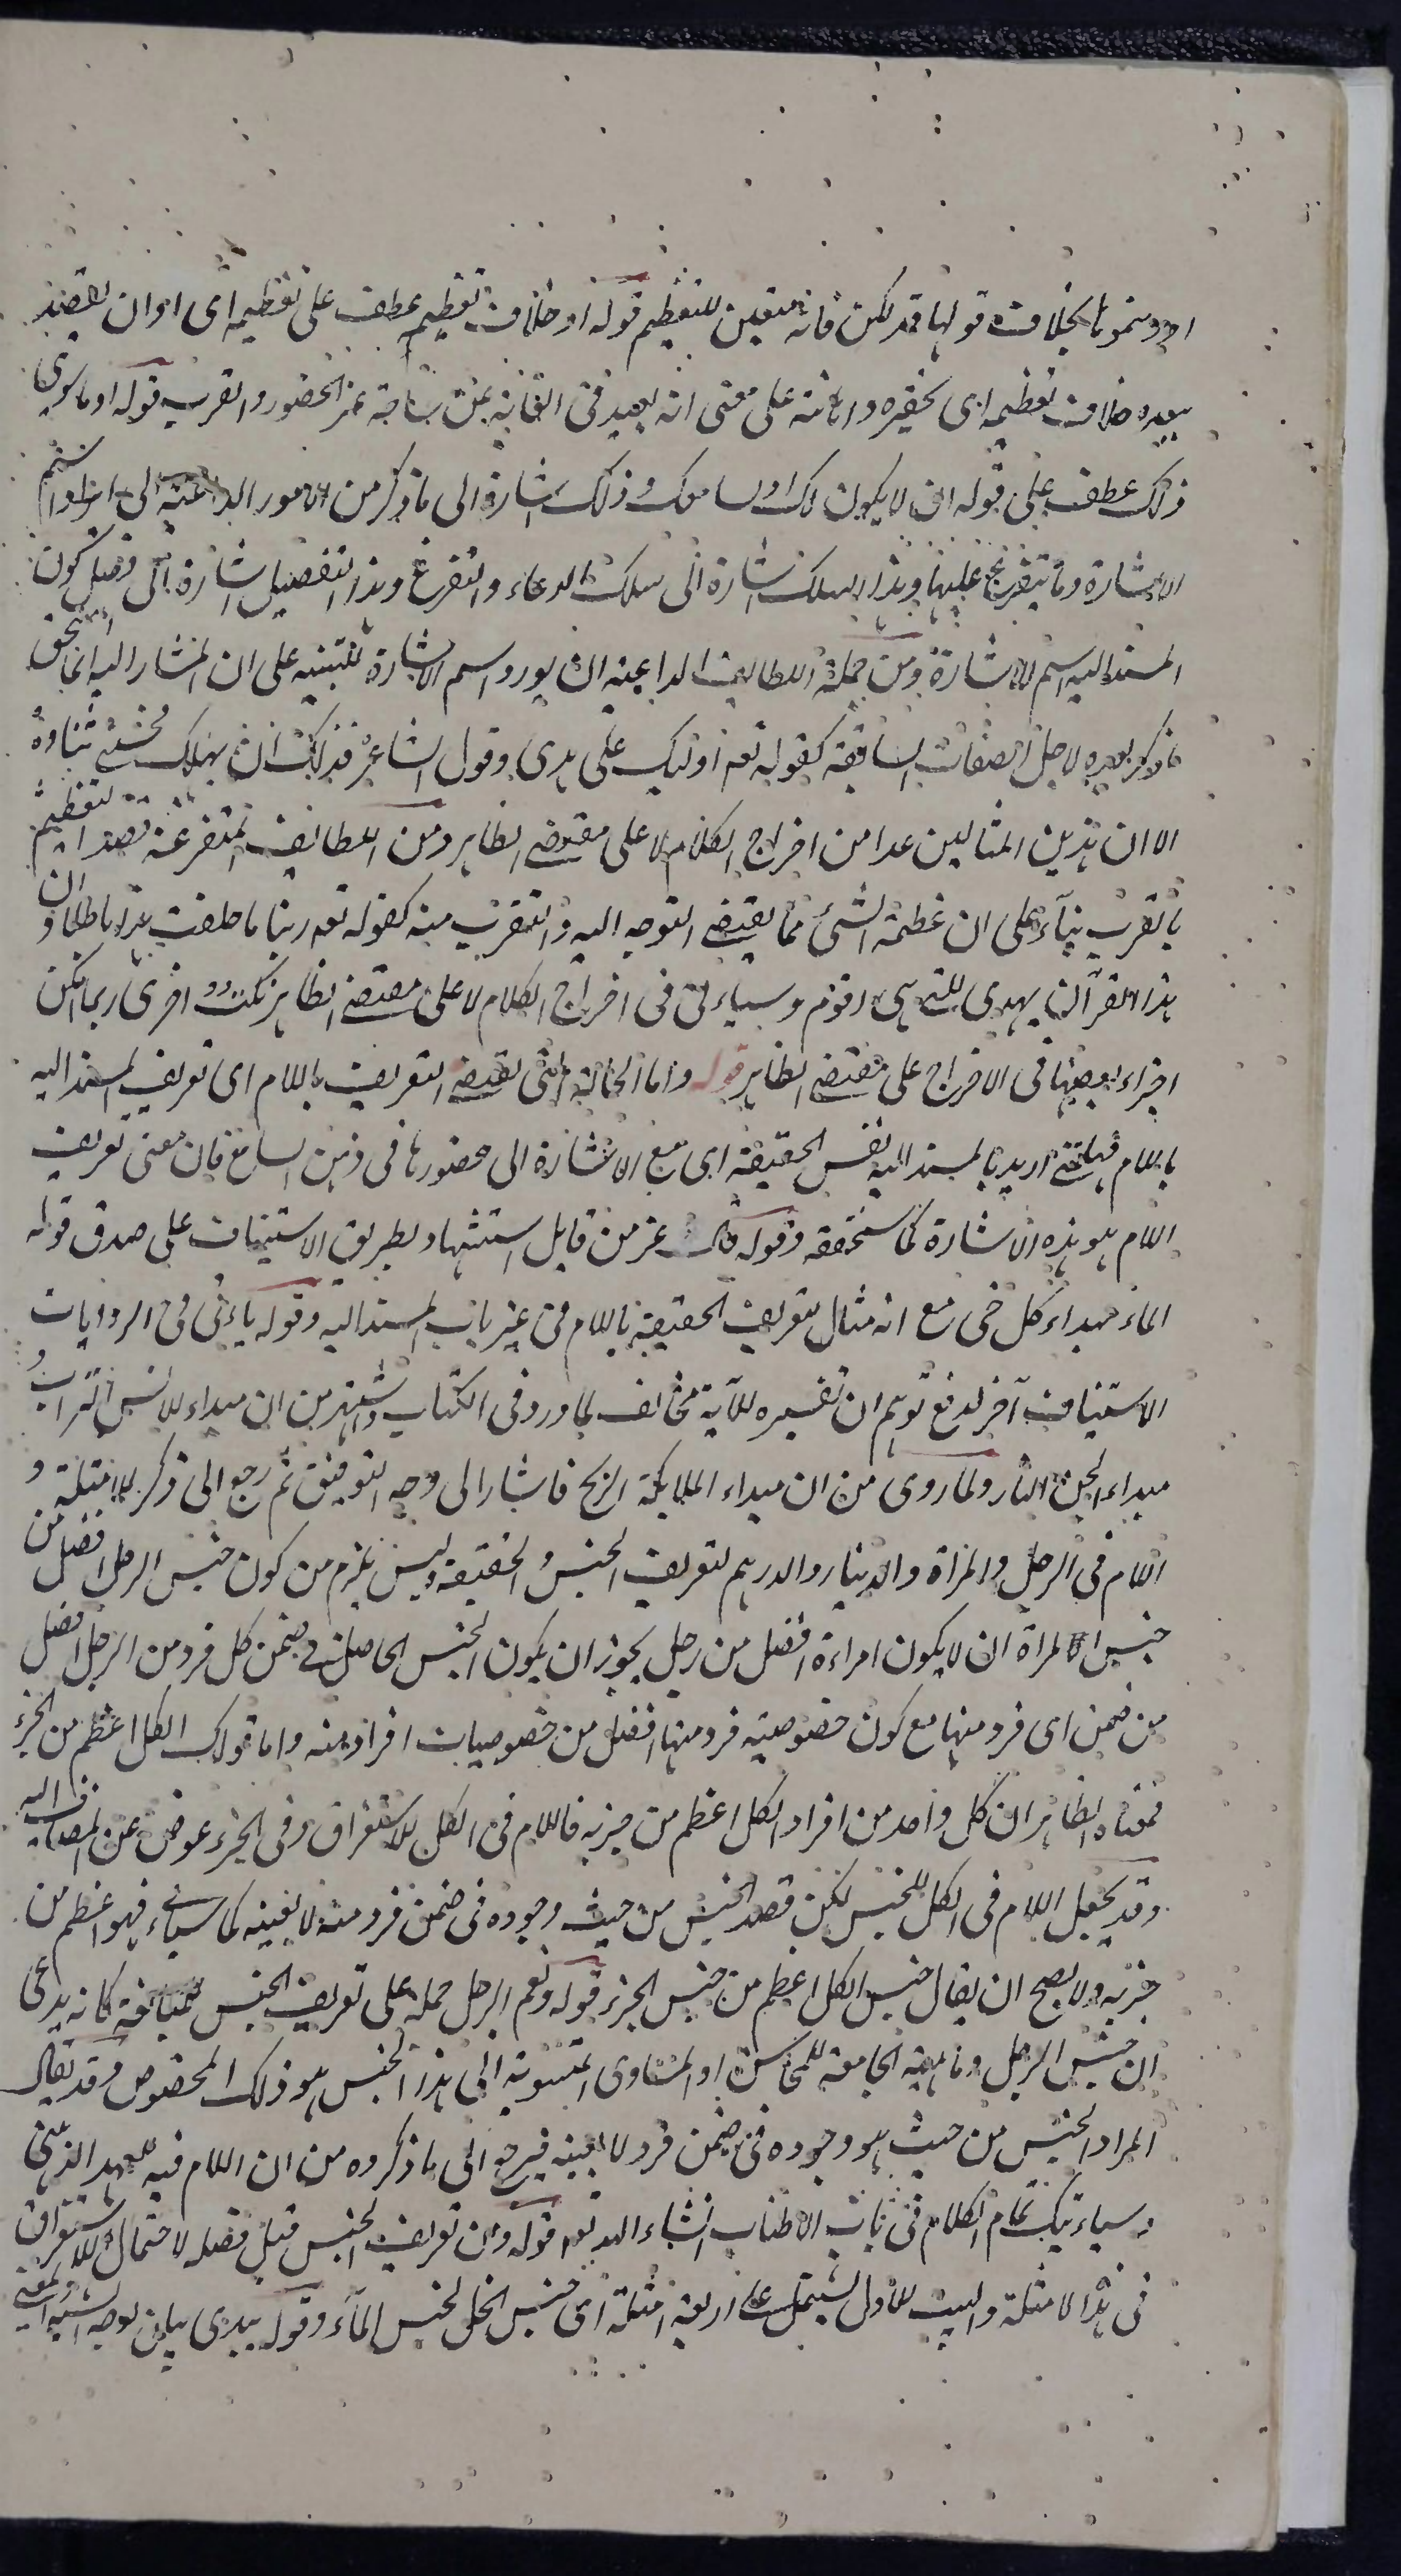 او دونمونا بخلاف قولها فذلكن فانه متعين للتعظيم قوله او خلاف تعظيم عطف على تعظيمه اى او ان يقصد
ببعده خلاف تعظيمه اى تحقيره واهانته على معنى انه بعيد فى الغاية عن ساحة عز الحضور والقرب قوله او ما سوى
ذلك عطف على قوله ان لا يكون لك او لسامعك وذلك اشارة الى ما ذكر من الامور الداعية الى ايراد اسم
الاشارة وما يتفرع عليها وهذا السلك اشارة الى سلك الدعاء والتفرع وهذا التفصيل اشارة الى فصل كون
المسند اليه اسم الاشارة ومن جملة اللطايف الداعية ان يورد اسم الاشارة للتنبيه على ان المشار اليه انما استحق
ما ذكر بعده لاجل الصفات السابقة كقوله تعم اولئك على هدى وقول الشاعر فذلك ان يهلك فحسنى ثناؤه
الا ان هذين المثالين عدا من اخراج الكلام لا على مقتضى الظاهر ومن اللطايف المتفرعة قصد التعظيم
بالقرب بناء على ان عظمة الشئ مما يقتضى التوجه اليه والتقرب منه كقوله تعم ربنا ما خلقت هذا باطلا وان
هذا القرآن يهدى للتى هى اقوم وسيأتى فى اخراج الكلام لا على مقتضى الظاهر نكت اخرى ربما امكن
اجراء بعضها فى الاخراج على مقتضى الظاهر قوله واما الحالة التى تقتضى التعريف باللام اى تعريف المسند اليه
باللام فمتى اريد بالمسند اليه نفس الحقيقة اى مع الاشارة الى حضورها فى ذهن السامع فان معنى تعريف
اللام هو هذه الاشارة كما ستحققه وقوله قال عز من قايل استشهاد بطريق الاستيناف على صدق قوله
الماء مبداء كل حى مع انه مثال لتعريف الحقيقة باللام فى غير باب المسند اليه وقوله يأتى فى الروايات
الاستيناف آخر لدفع توهم ان تفسيره للآية مخالف لما ورد فى الكتاب واشتهر من ان مبداء للانس التراب
مبداء الجن النار ولما روى من ان مبداء الملايكة الريح فاشار الى وجه التوفيق ثم رجع الى ذكر الامثلة و
اللام فى الرجل والمراة والدينار والدرهم لتعريف الجنس والحقيقة وليس يلزم من كون جنس الرجل افضل من
جنس المراة ان لا يكون امراءة افضل من رجل يجوز ان يكون الجنس الحاصل فى ضمن كل فرد من الرجل افضل
من ضمن اى فرد منها مع كون خصوصية فرد منها افضل من خصوصيات افراد منه واما قولك الكل اعظم من الجزء
فمعناه الظاهر ان كل واحد من افراد الكل اعظم من جزئه فاللام فى الكل للاستغراق وفى الجزء عوض عن المضاف اليه
وقد يجعل اللام فى الكل للجنس لكن قصد الجنس من حيث وجوده فى ضمن فرد منه لا بعينه كما سيأتى فهو اعظم من
جزئه ولا يصح ان يقال جنس الكل اعظم من جنس الجزء قوله ونعم الرجل حمله على تعريف الجنس للمبالغة كانه يدعى
ان جنس الرجل وماهيته الجامعة للمحاسن او المساوى المنسوبة الى هذا الجنس هو ذلك المخصوص وقد يقال
المراد الجنس من حيث هو وجوده فى ضمن فرد لا بعينه فيرجع الى ما ذكروه من ان اللام فيه للعهد الذهنى
وسيأتيك تمام الكلام فى باب الاطناب انشاء الله تعم قوله ومن تعريف الجنس قبل فصله لاحتمال الاستغراق
فى هذه الامثلة والبيت الاول يشتمل على اربعة امثلة اى جنس الخل لجنس الماء وقوله يبدى بيان لوجه الشبه